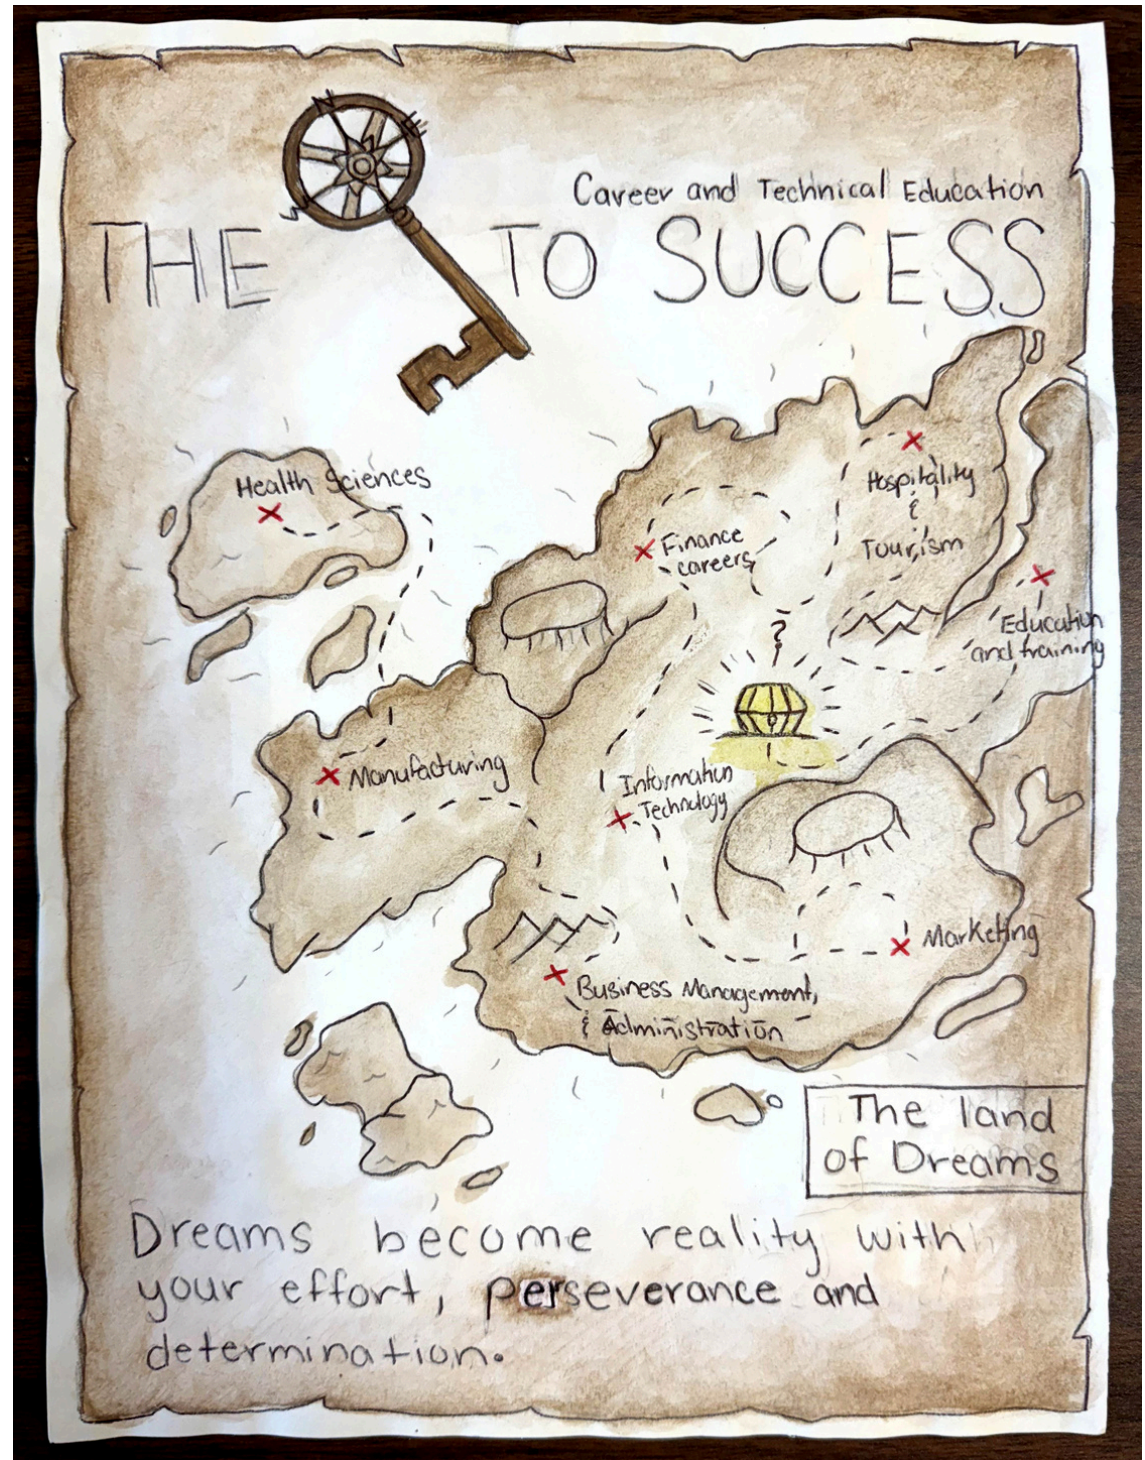 N
E
S
Career and Technical Education
THE TO SUCCESS
Health Sciences
Hospitality
&
Tourism
Finance
careers
Education
and training
?
Manufacturing
Information
Technology
Marketing
Business Management,
& Administration
The land
of Dreams
Dreams become reality with
your effort, perseverance and
determination.